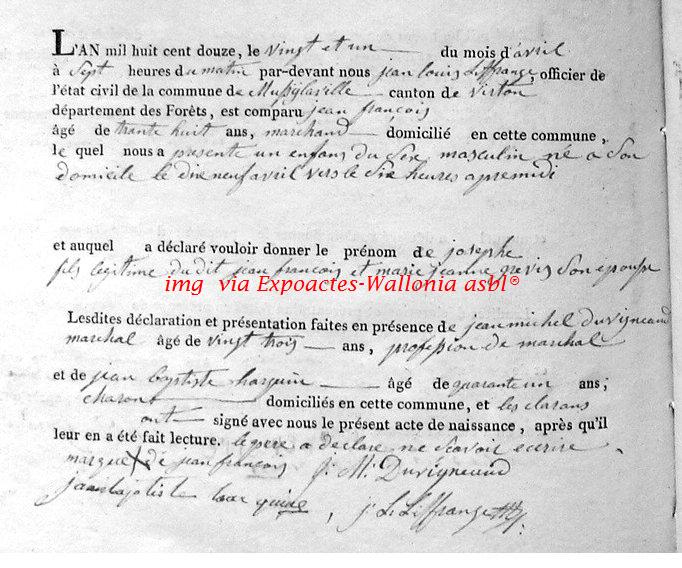 L'AN mil huit cent douze, le vingt et un du mois d'avril
à Sept heures du matin par-devant nous jean louis Liffrange, officier de
l'état civil de la commune de Mussylaville canton de virton
département des Forêts, est comparu jean françois
âgé de trante huit ans, marchand domicilié en cette commune,
le quel nous a presente un enfans du Sex masculin né a Son
domicile le dix neuf avril vers le Six heures apremidi
et auquel a déclaré vouloir donner le prénom de josephe
fils legitime dudit jean francois et marie jeanne grevis Son epousse
img via Expoactes-Wallonia asbl®
Lesdites déclaration et présentation faites en présence de jean michel duvigneaud
marchal âgé de vingt trois ans, profession de marchal
et de jean baptiste harquin âgé de quarante un ans;
charont domiciliés en cette commune, et les clarans
ont signé avec nous le présent acte de naissance, après qu'il
leur en a été fait lecture. le pere a declare ne Scavoir ecrire
marque X de jean françois j. M. Duvigneaud
j. L. Liffrange